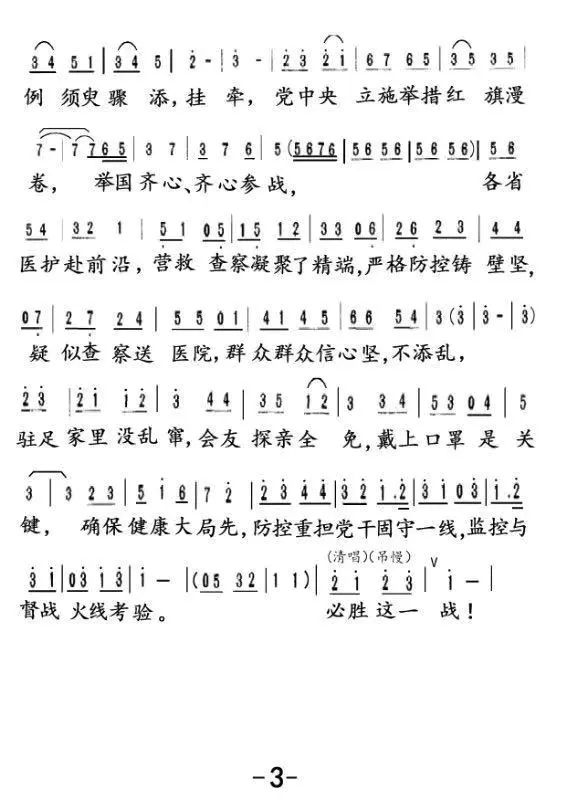 3 4 5 1 | 3 4 5 | 2 - | 3 - | 2 3 2 1 | 6 7 6 5 | 3 5 3 5 |
例 须臾 骤 添,挂 牵, 党中央 立施举措红 旗漫
7 - | 7 7 6 5 | 3 7 | 3 7 6 | 5 (5 6 7 6 | 5 6 5 6 | 5 6 5 6) | 5 6
卷, 举国齐心、齐心参战, 各省
5 4 3 2 1 | 5 1 0 5 | 1 5 1 2 | 3 3 0 6 | 2 6 2 3 | 4 4
医护赴前沿,营救 查察凝聚了精端,严格防控铸 壁坚,
0 7 | 2 7 2 4 | 5 5 0 1 | 4 1 4 5 | 6 6 5 4 | 3 (3 | 3 - | 3)
疑 似查 察送 医院,群众群众信心坚,不添乱,
2 3 | 2 1 1 2 | 3 4 4 | 3 5 1 2 | 3 3 4 | 5 3 0 4 | 5
驻足 家里没乱 窜,会友 探亲全 免,戴上口罩 是 关
3 | 3 2 3 | 5 1 6 | 7 2 | 2 3 4 4 | 3 2 1 . 2 | 3 1 0 3 | 1 . 2
键, 确保健康大局先,防控重担党干固守一线,监控与
3 1 | 0 3 1 3 | 1 — | (0 5 3 2 | 1 1) | (清唱)(吊慢) 2 1 2 3 | ∨ 1 — |
督战 火线考验。 必胜这一 战!
-3-